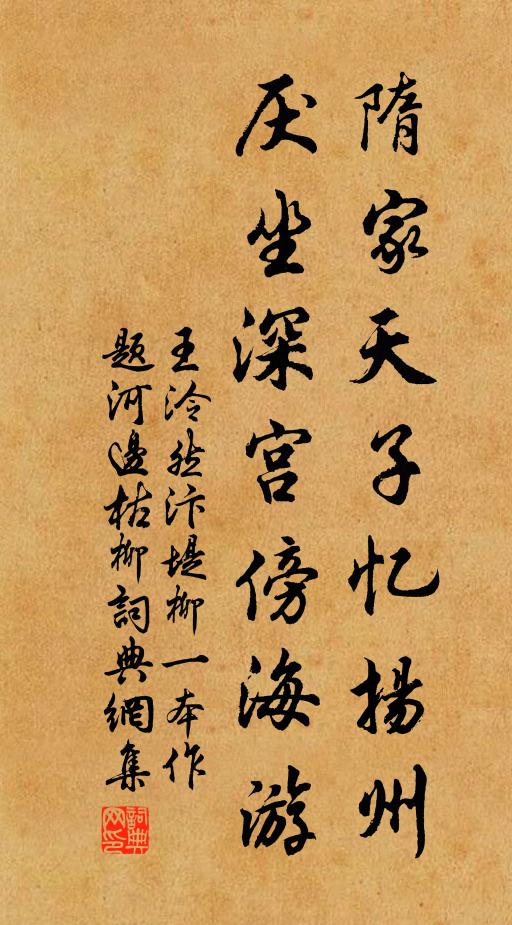 隋家天子忆揚州
厌坐深宫傍海游
王泠然汴堤柳一本作
题河邊枯柳詞典網集
詞典网印